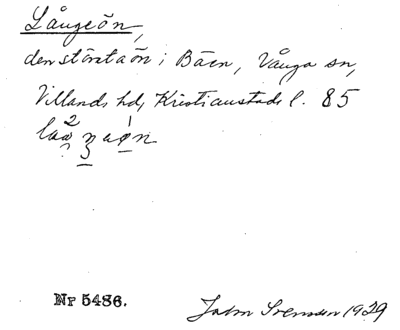 Långeön,
den största ön i Bäen, Vånga sn,
Villands hd, Kristianstads l. 85
Nr 5486.
John Svensson 1929